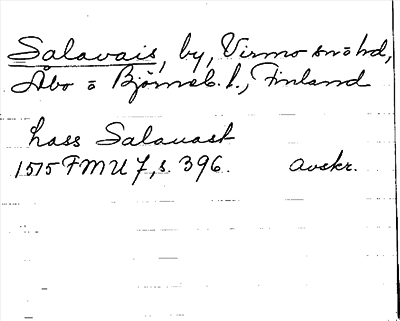 Salavais, by, Virmo sn o hd,
Åbo o Björneb. l., Finland
Lass Salauast
1515 FMU 7, s. 396. Avskr.